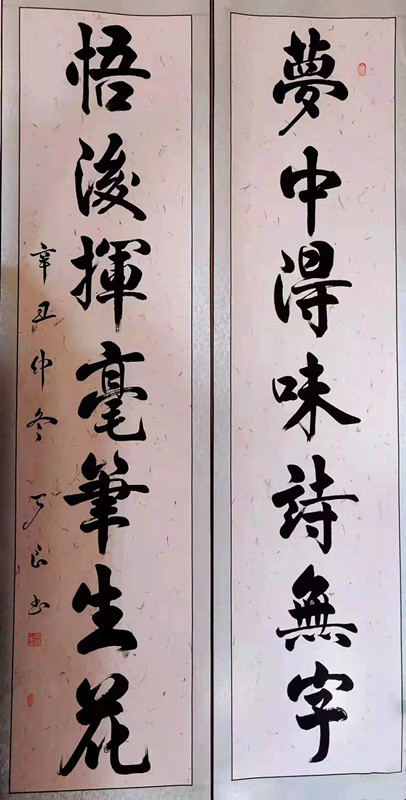 夢中得味詩無字
悟後揮毫筆生花
辛丑仲冬
良书